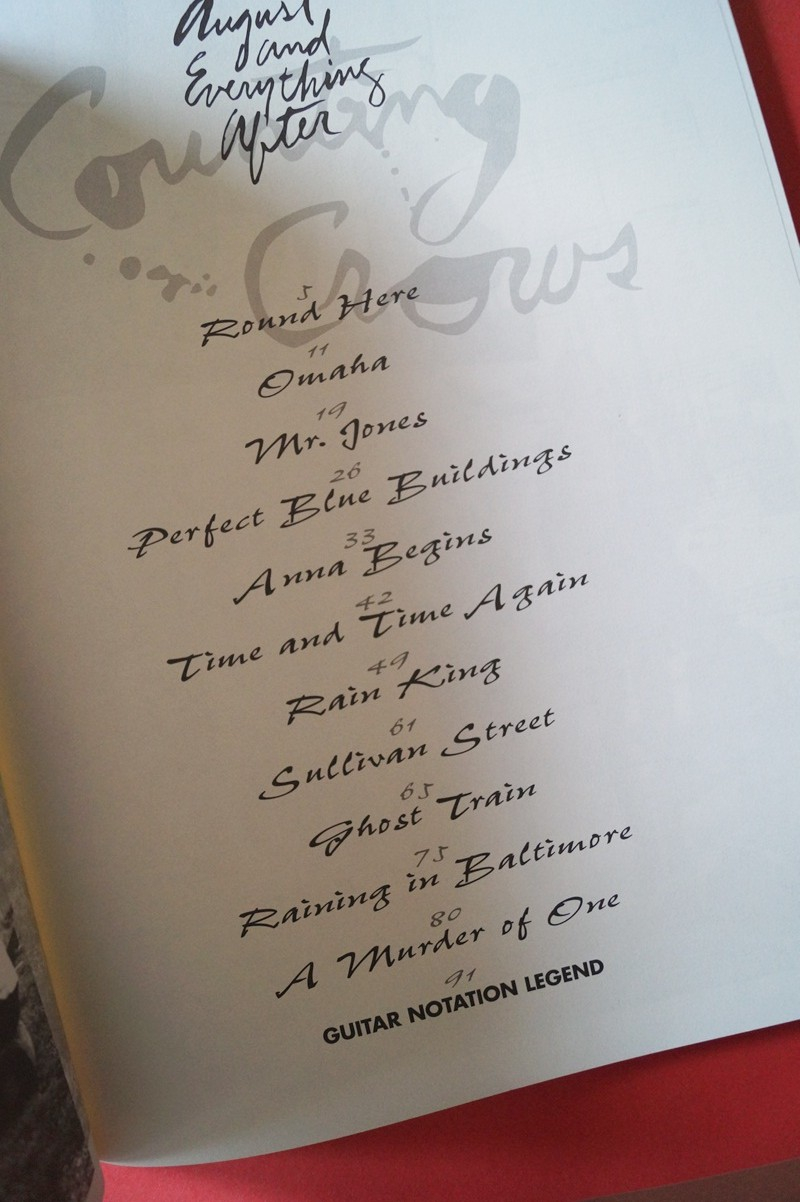 August
and
Everything
After
Counting
Crows
5
Round Here
11
Omaha
19
Mr. Jones
26
Perfect Blue Buildings
33
Anna Begins
42
Time and Time Again
49
Rain King
61
Sullivan Street
65
Ghost Train
75
Raining in Baltimore
80
A Murder of One
91
GUITAR NOTATION LEGEND